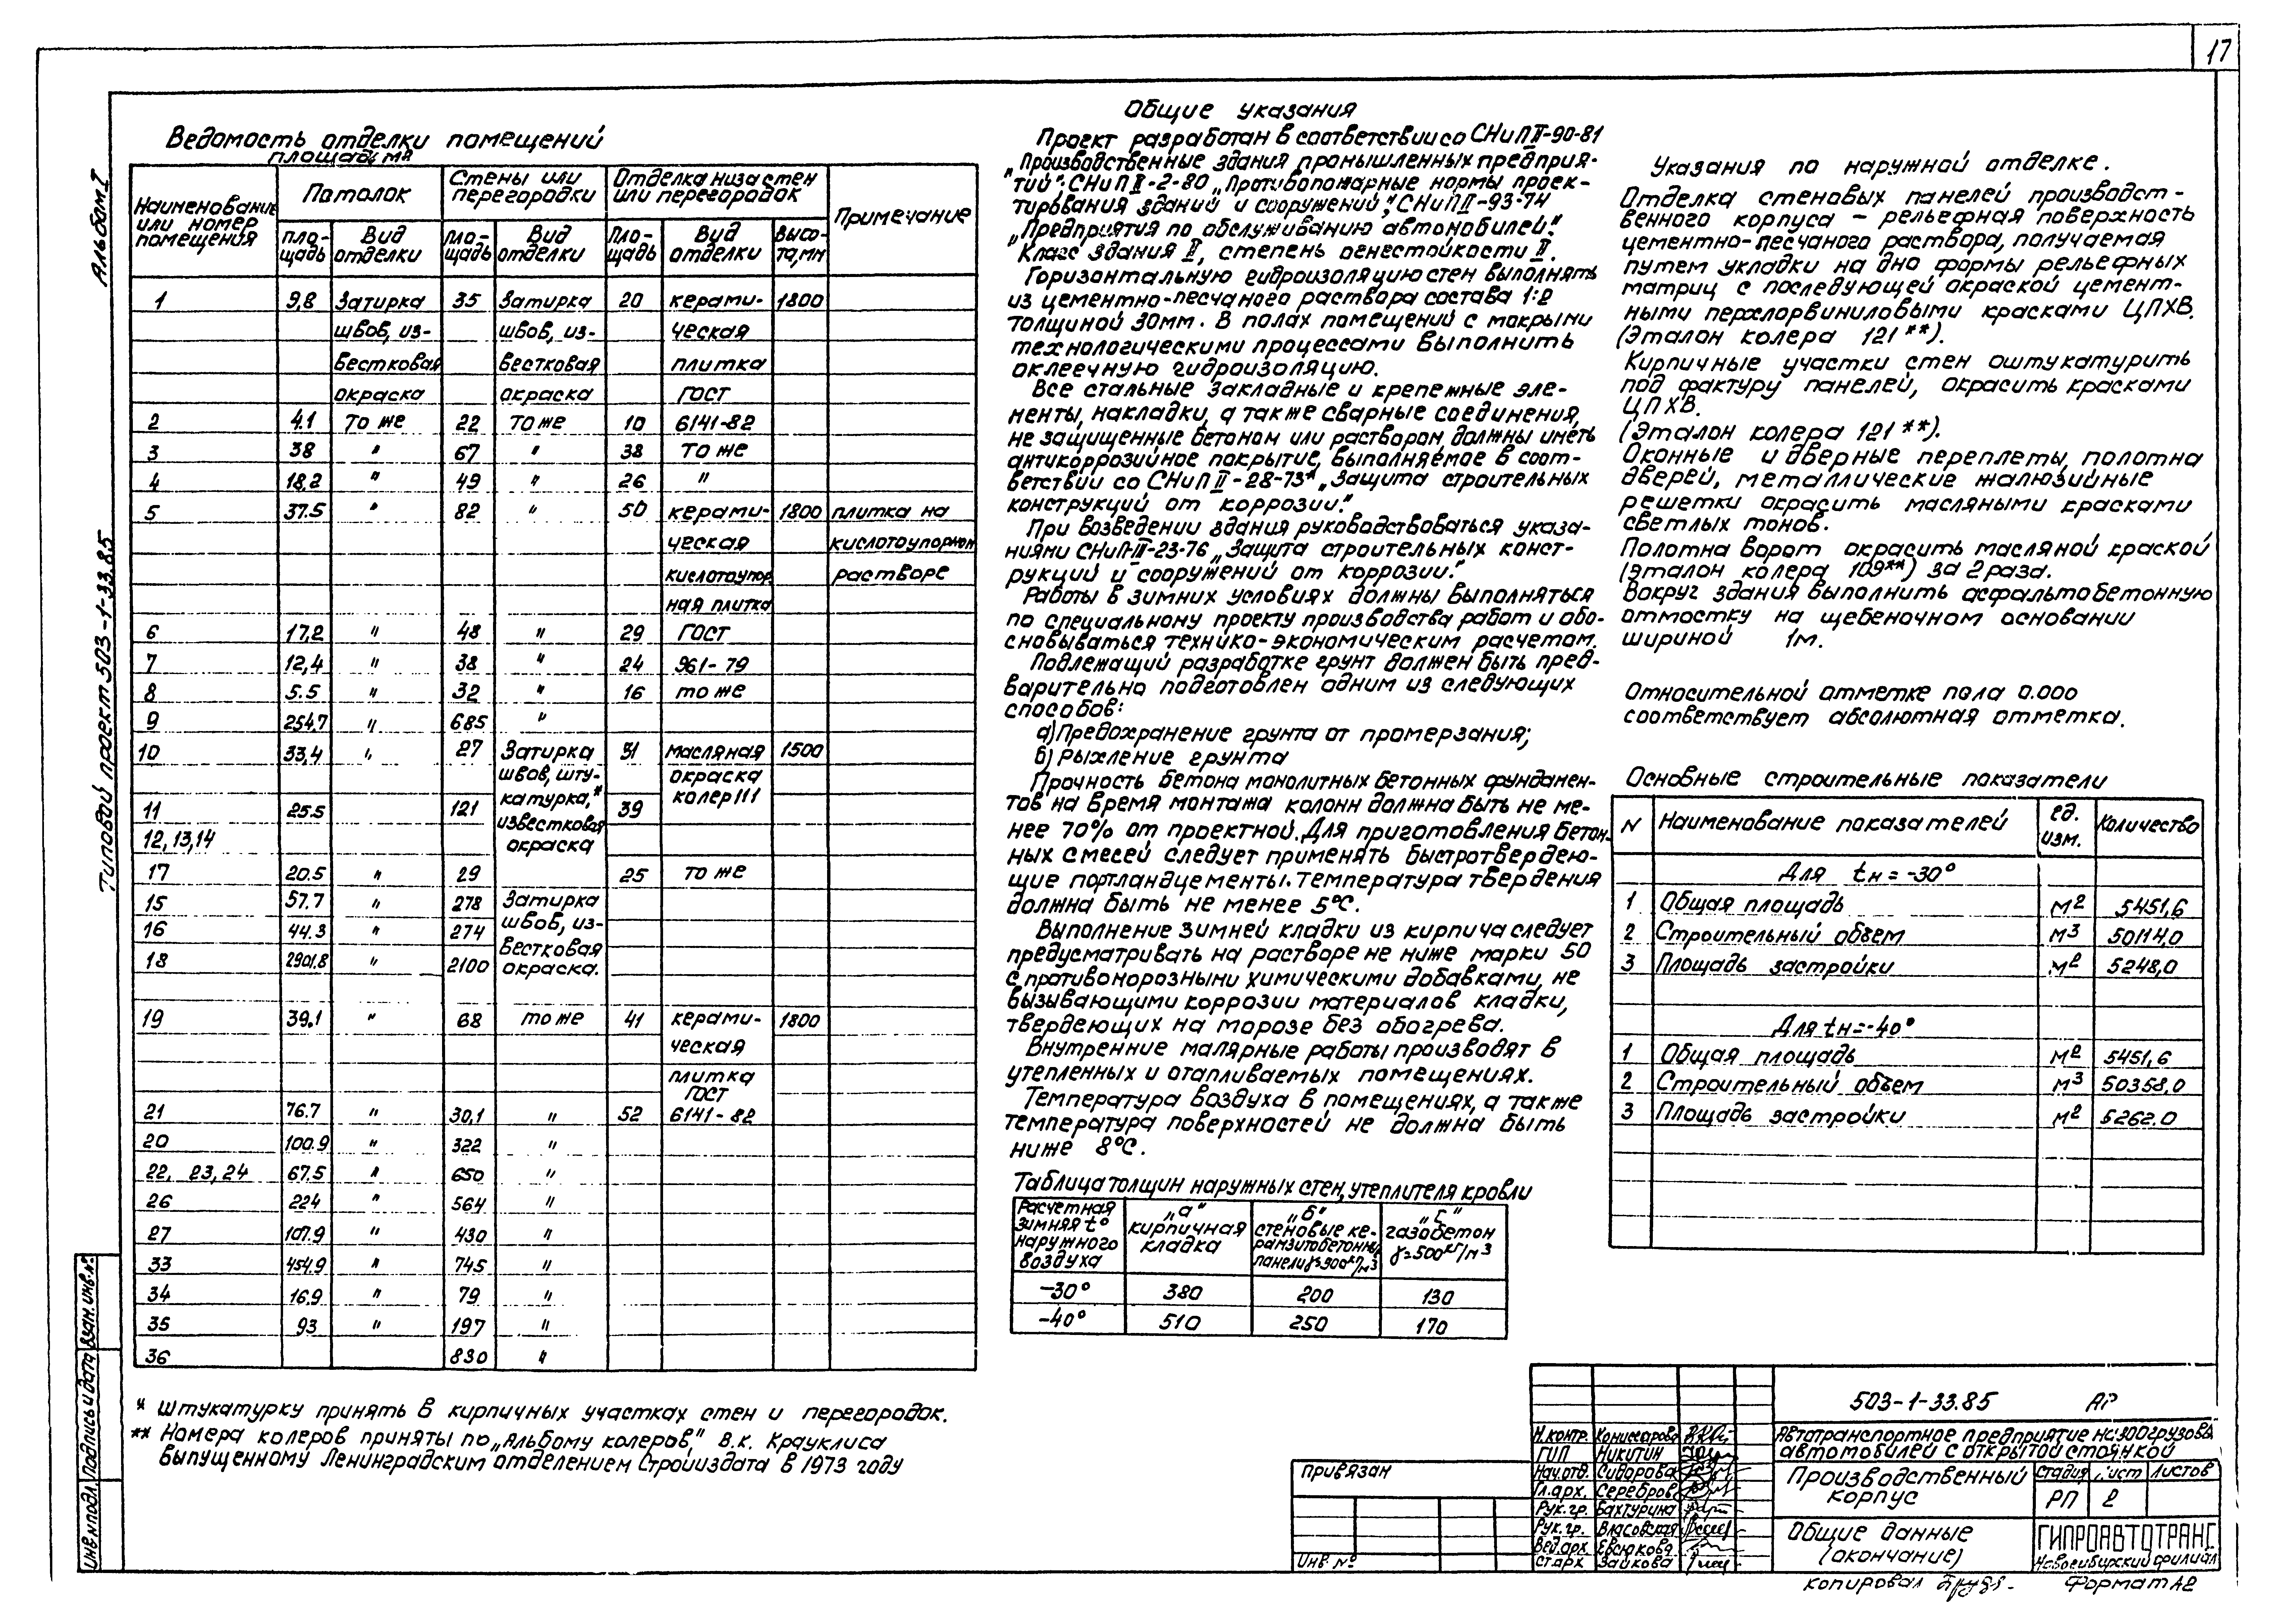 17
Альбом I
Типовой проект 503-1-33.85
Ведомость отделки помещений
площадь м2
Наименование или номер помещения | Потолок | Стены или перегородки | Отделка низа стен или перегородок | Примечание
площадь | Вид отделки | площадь | Вид отделки | площадь | Вид отделки | Высота, мм
1 | 9,8 | Затирка | 35 | Затирка | 20 | керами- | 1800
швов, из- | швов, из- | ческая
вестковая | вестковая | плитка
окраска | окраска | ГОСТ
2 | 4.1 | То же | 22 | то же | 10 | 6141-82
3 | 38 | " | 67 | " | 38 | то же
4 | 18,2 | " | 49 | " | 26 | "
5 | 37.5 | " | 82 | " | 50 | керами- | 1800 | плитка на
ческая | кислотоупорном
кислотоупор | растворе
ная плитка
6 | 17,2 | " | 48 | " | 29 | ГОСТ
7 | 12,4 | " | 38 | " | 24 | 961-79
8 | 5.5 | " | 32 | " | 16 | то же
9 | 254,7 | " | 685 | "
10 | 33,4 | " | 27 | Затирка | 31 | масляная | 1500
швов, шту- | окраска
катурка,* | колер 111
11 | 25.5 | 121 | известковая | 39
12, 13, 14 | окраска
17 | 20.5 | " | 29 | 25 | то же
15 | 57.7 | " | 278 | Затирка
16 | 44.3 | " | 274 | швов, из-
вестковая
18 | 2901,8 | " | 2100 | окраска.
19 | 39.1 | " | 68 | то же | 41 | керами- | 1800
ческая
плитка
ГОСТ
21 | 76.7 | " | 30,1 | " | 52 | 6141-82
20 | 100.9 | " | 322 | "
22, 23, 24 | 67.5 | " | 650 | "
26 | 224 | " | 564 | "
27 | 107.9 | " | 430 | "
33 | 454,9 | " | 745 | "
34 | 16.9 | " | 79 | "
35 | 93 | " | 197 | "
36 | 830 | "
* Штукатурку принять в кирпичных участках стен и перегородок.
** Номера колеров приняты по „Альбому колеров," В.К. Крауклиса
выпущенному Ленинградским отделением Стройиздата в 1973 году
Общие указания
Проект разработан в соответствии со СНиП II-90-81
„Производственные здания промышленных предприя-
тий". СНиП II-2-80 „Противопожарные нормы проек-
тирования зданий и сооружений", СНиП II-93-74
„Предприятия по обслуживанию автомобилей".
Класс здания II, степень огнестойкости II.
Горизонтальную гидроизоляцию стен выполнять
из цементно-песчаного раствора состава 1:2
толщиной 30мм. В полах помещений с мокрыми
технологическими процессами выполнить
оклеечную гидроизоляцию.
Все стальные закладные и крепежные эле-
менты, накладки, а также сварные соединения,
не защищенные бетоном или раствором, должны иметь
антикоррозийное покрытие, выполняемое в соот-
ветствии со СНиП II-28-73* „Защита строительных
конструкций от коррозии".
При возведении здания руководствоваться указа-
ниями СНиП-III-23-76 „Защита строительных конст-
рукций и сооружений от коррозии".
Работы в зимних условиях должны выполняться
по специальному проекту производства работ и обо-
сновываться технико-экономическим расчетом.
Подлежащий разработке грунт должен быть пред-
варительно подготовлен одним из следующих
способов:
а) Предохранение грунта от промерзания;
б) Рыхление грунта
Прочность бетона монолитных бетонных фундамен-
тов на время монтажа колонн должна быть не ме-
нее 70% от проектной. Для приготовления бетон-
ных смесей следует применять быстротвердею-
щие портландцементы. Температура твердения
должна быть не менее 5°С.
Выполнение зимней кладки из кирпича следует
предусматривать на растворе не ниже марки 50
с противоморозными химическими добавками, не
вызывающими коррозии материалов кладки,
твердеющих на морозе без обогрева.
Внутренние малярные работы производят в
утепленных и отапливаемых помещениях.
Температура воздуха в помещениях, а также
температура поверхностей не должна быть
ниже 8°С.
Таблица толщин наружных стен, утеплителя кровли
Расчетная зимняя t° наружного воздуха | „а" кирпичная кладка | „б" стеновые керамзитобетонны панели γ=900кг/м3 | „Г" газобетон γ=500кг/м3
-30° | 380 | 200 | 130
-40° | 510 | 250 | 170
Указания по наружной отделке.
Отделка стеновых панелей производст-
венного корпуса - рельефная поверхность
цементно-песчаного раствора, получаемая
путем укладки на дно формы рельефных
матриц с последующей окраской цемент-
ными перхлорвиниловыми красками ЦПХВ.
(Эталон колера 121**).
Кирпичные участки стен оштукатурить
под фактуру панелей, окрасить красками
ЦПХВ.
(Эталон колера 121**).
Оконные и дверные переплеты, полотна
дверей, металлические жалюзийные
решетки окрасить масляными красками
светлых тонов.
Полотна ворот окрасить масляной краской
(эталон колера 109**) за 2 раза.
Вокруг здания выполнить асфальтобетонную
отмостку на щебеночном основании
шириной 1м.
Относительной отметке пола 0.000
соответствует абсолютная отметка.
Основные строительные показатели
N | Наименование показателей | ед. изм. | Количество
Для tн = -30°
1 | Общая площадь | м2 | 5451,6
2 | Строительный объем | м3 | 50114,0
3 | Площадь застройки | м2 | 5248,0
Для tн = -40°
1 | Общая площадь | м2 | 5451,6
2 | Строительный объем | м3 | 50358,0
3 | Площадь застройки | м2 | 5262.0
Привязан
Инв. №
Н.контр. Комиссарова
ГИП Никитин
Нач.отд. Сидорова
Гл.арх. Серебров
Рук.гр. Бахтурина
Рук.гр. Власовская
Вед.арх. Евсюкова
Старх Зайкова
503-1-33.85 АР
Автотранспортное предприятие на 300 грузовы
автомобилей с открытой стоянкой
Производственный корпус
Стадия | Лист | Листов
РП | 2
Общие данные
(окончание)
ГИПРОАВТОТРАНС
Новосибирский филиал
Копировал
Формат А2
Инв.N подл. | Подпись и дата | Взам. инв. №